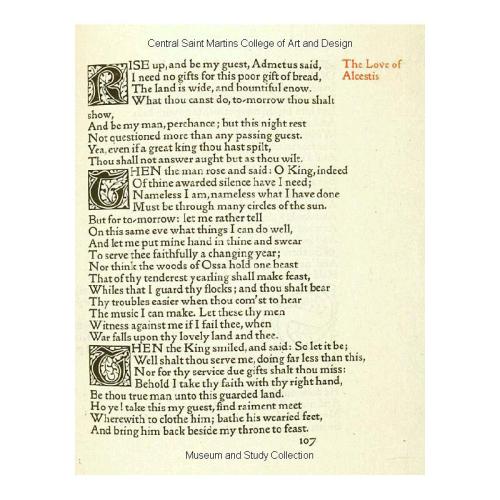 Central Saint Martins College of Art and Design
RISE up, and be my guest, Admetus said,
I need no gifts for this poor gift of bread,
The land is wide, and bountiful enow.
What thou canst do, to-morrow thou shalt
show,
And be my man, perchance; but this night rest
Not questioned more than any passing guest.
Yea, even if a great king thou hast spilt,
Thou shall not answer aught but as thou wilt.
THEN the man rose and said: O King, indeed
Of thine awarded silence have I need;
Nameless I am, nameless what I have done
Must be through many circles of the sun.
But for to-morrow: let me rather tell
On this same eve what things I can do well,
And let me put mine hand in thine and swear
To serve thee faithfully a changing year;
Nor think the woods of Ossa hold one beast
That of thy tenderest yearling shall make feast,
Whiles that I guard thy flocks; and thou shalt bear
Thy troubles easier when thou com'st to hear
The music I can make. Let these thy men
Witness against me if I fail thee, when
War falls upon thy lovely land and thee.
THEN the King smiled, and said: So let it be;
Well shalt thou serve me, doing far less than this,
Nor for thy service due gifts shalt thou miss:
Behold I take thy faith with thy right hand,
Be thou true man unto this guarded land.
Ho ye! take this my guest, find raiment meet
Wherewith to clothe him; bathe his wearied feet,
And bring him back beside my throne to feast.
107
The Love of
Alcestis
Museum and Study Collection